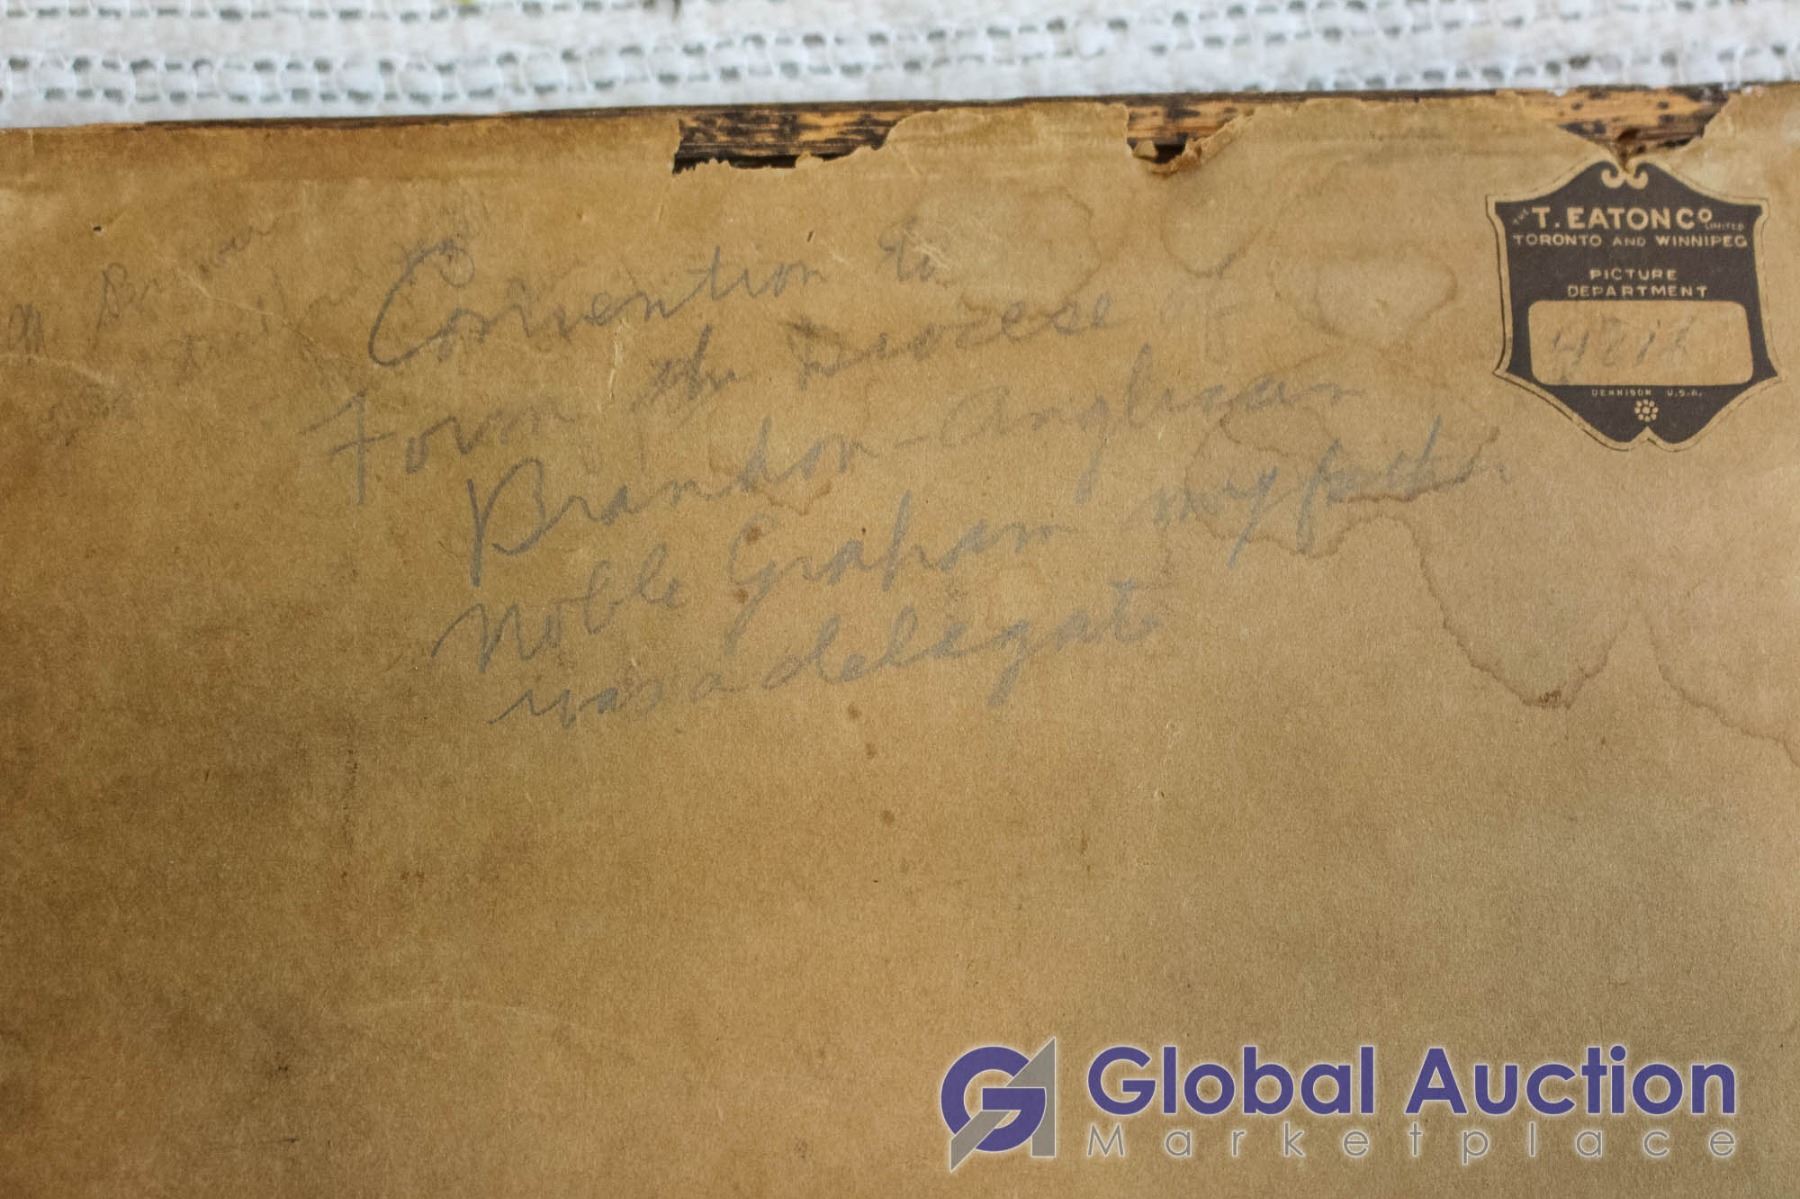 THE
T. EATON Co
LIMITED
TORONTO AND WINNIPEG
PICTURE
DEPARTMENT
DENNISON U.S.A.
Convention to
Form the Diocese of
Brandon - Anglican
Noble Graham my father
was a delegate
Global Auction
Marketplace